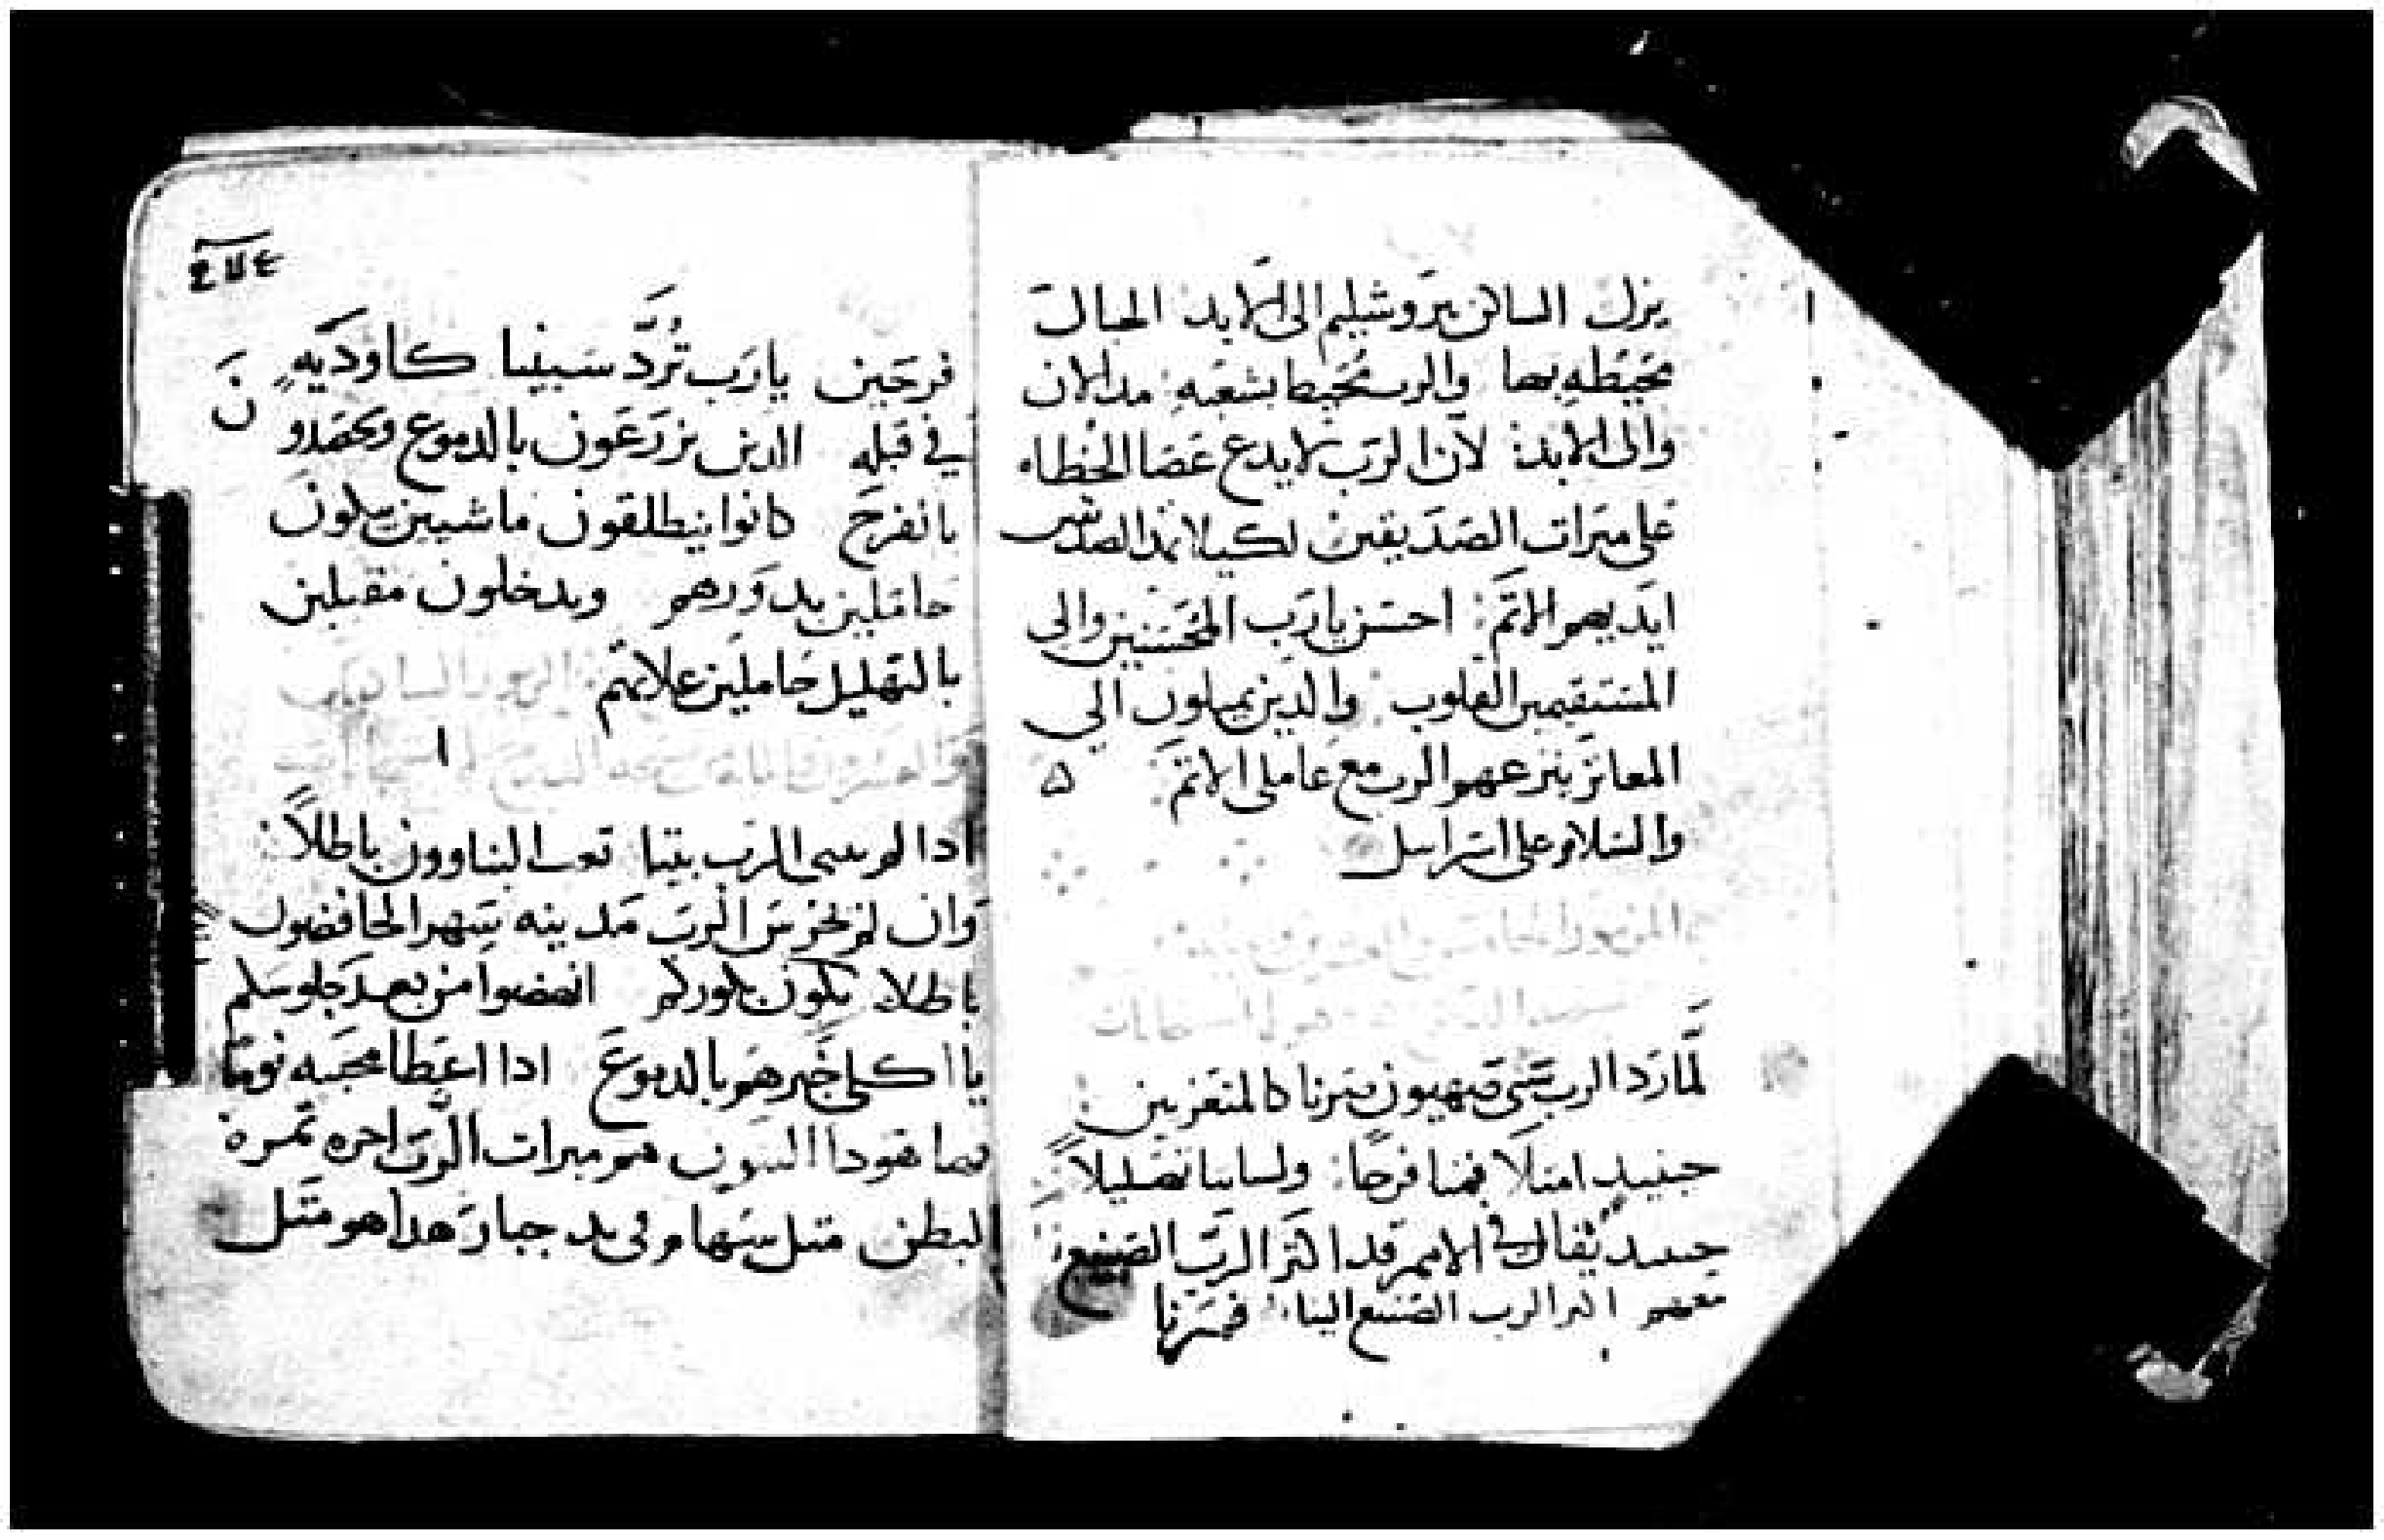 يزل الساكن يروشليم الى الابد الجبال
محيطه بها والرب محيط بشعبه مدالان
والى الابد لان الرب لا يدع عصا الخطاه
على ميرات الصديقين لكيلا تمد الصديقين
ايديهم الاتم احسن يا رب المحسنين والى
المستقيمين القلوب والدين يميلون الى
المعاتر ينزعهم الرب مع عاملى الاتم ه
والسلام على اسراييل
المزمور
لما رد الرب سبى صهيون صرنا كالمتعزيين
حينيد امتلا فمنا فرحا ولساننا تهليلا
حينيد يقال فى الامم قد اكتر الرب الصنيع
معهم اكتر الرب الصنيع الينا فصرنا
فرحين يا رب ترد سبينا كاودية
فى قبله الدين يزرعون بالدموع ويحصدون
بالفرح كانوا ينطلقون ماشيين يبكون
حاملين بدورهم ويدخلون مقبلين
بالتهليل حاملين غلاتهم
ادا لم يبنى الرب بيتا تعب البناوون باطلا
وان لم يحرس الرب مدينه سهر الحافضون
باطلا يكون بكوركم انهضوا من بعد جلوسكم
يا اكلى خبز هم بالدموع ادا اعطا محبيه نوما
فها هودا البنون هم ميرات الرب اجره تمرة
البطن متل سهام فى يد جبار هدا هو متل